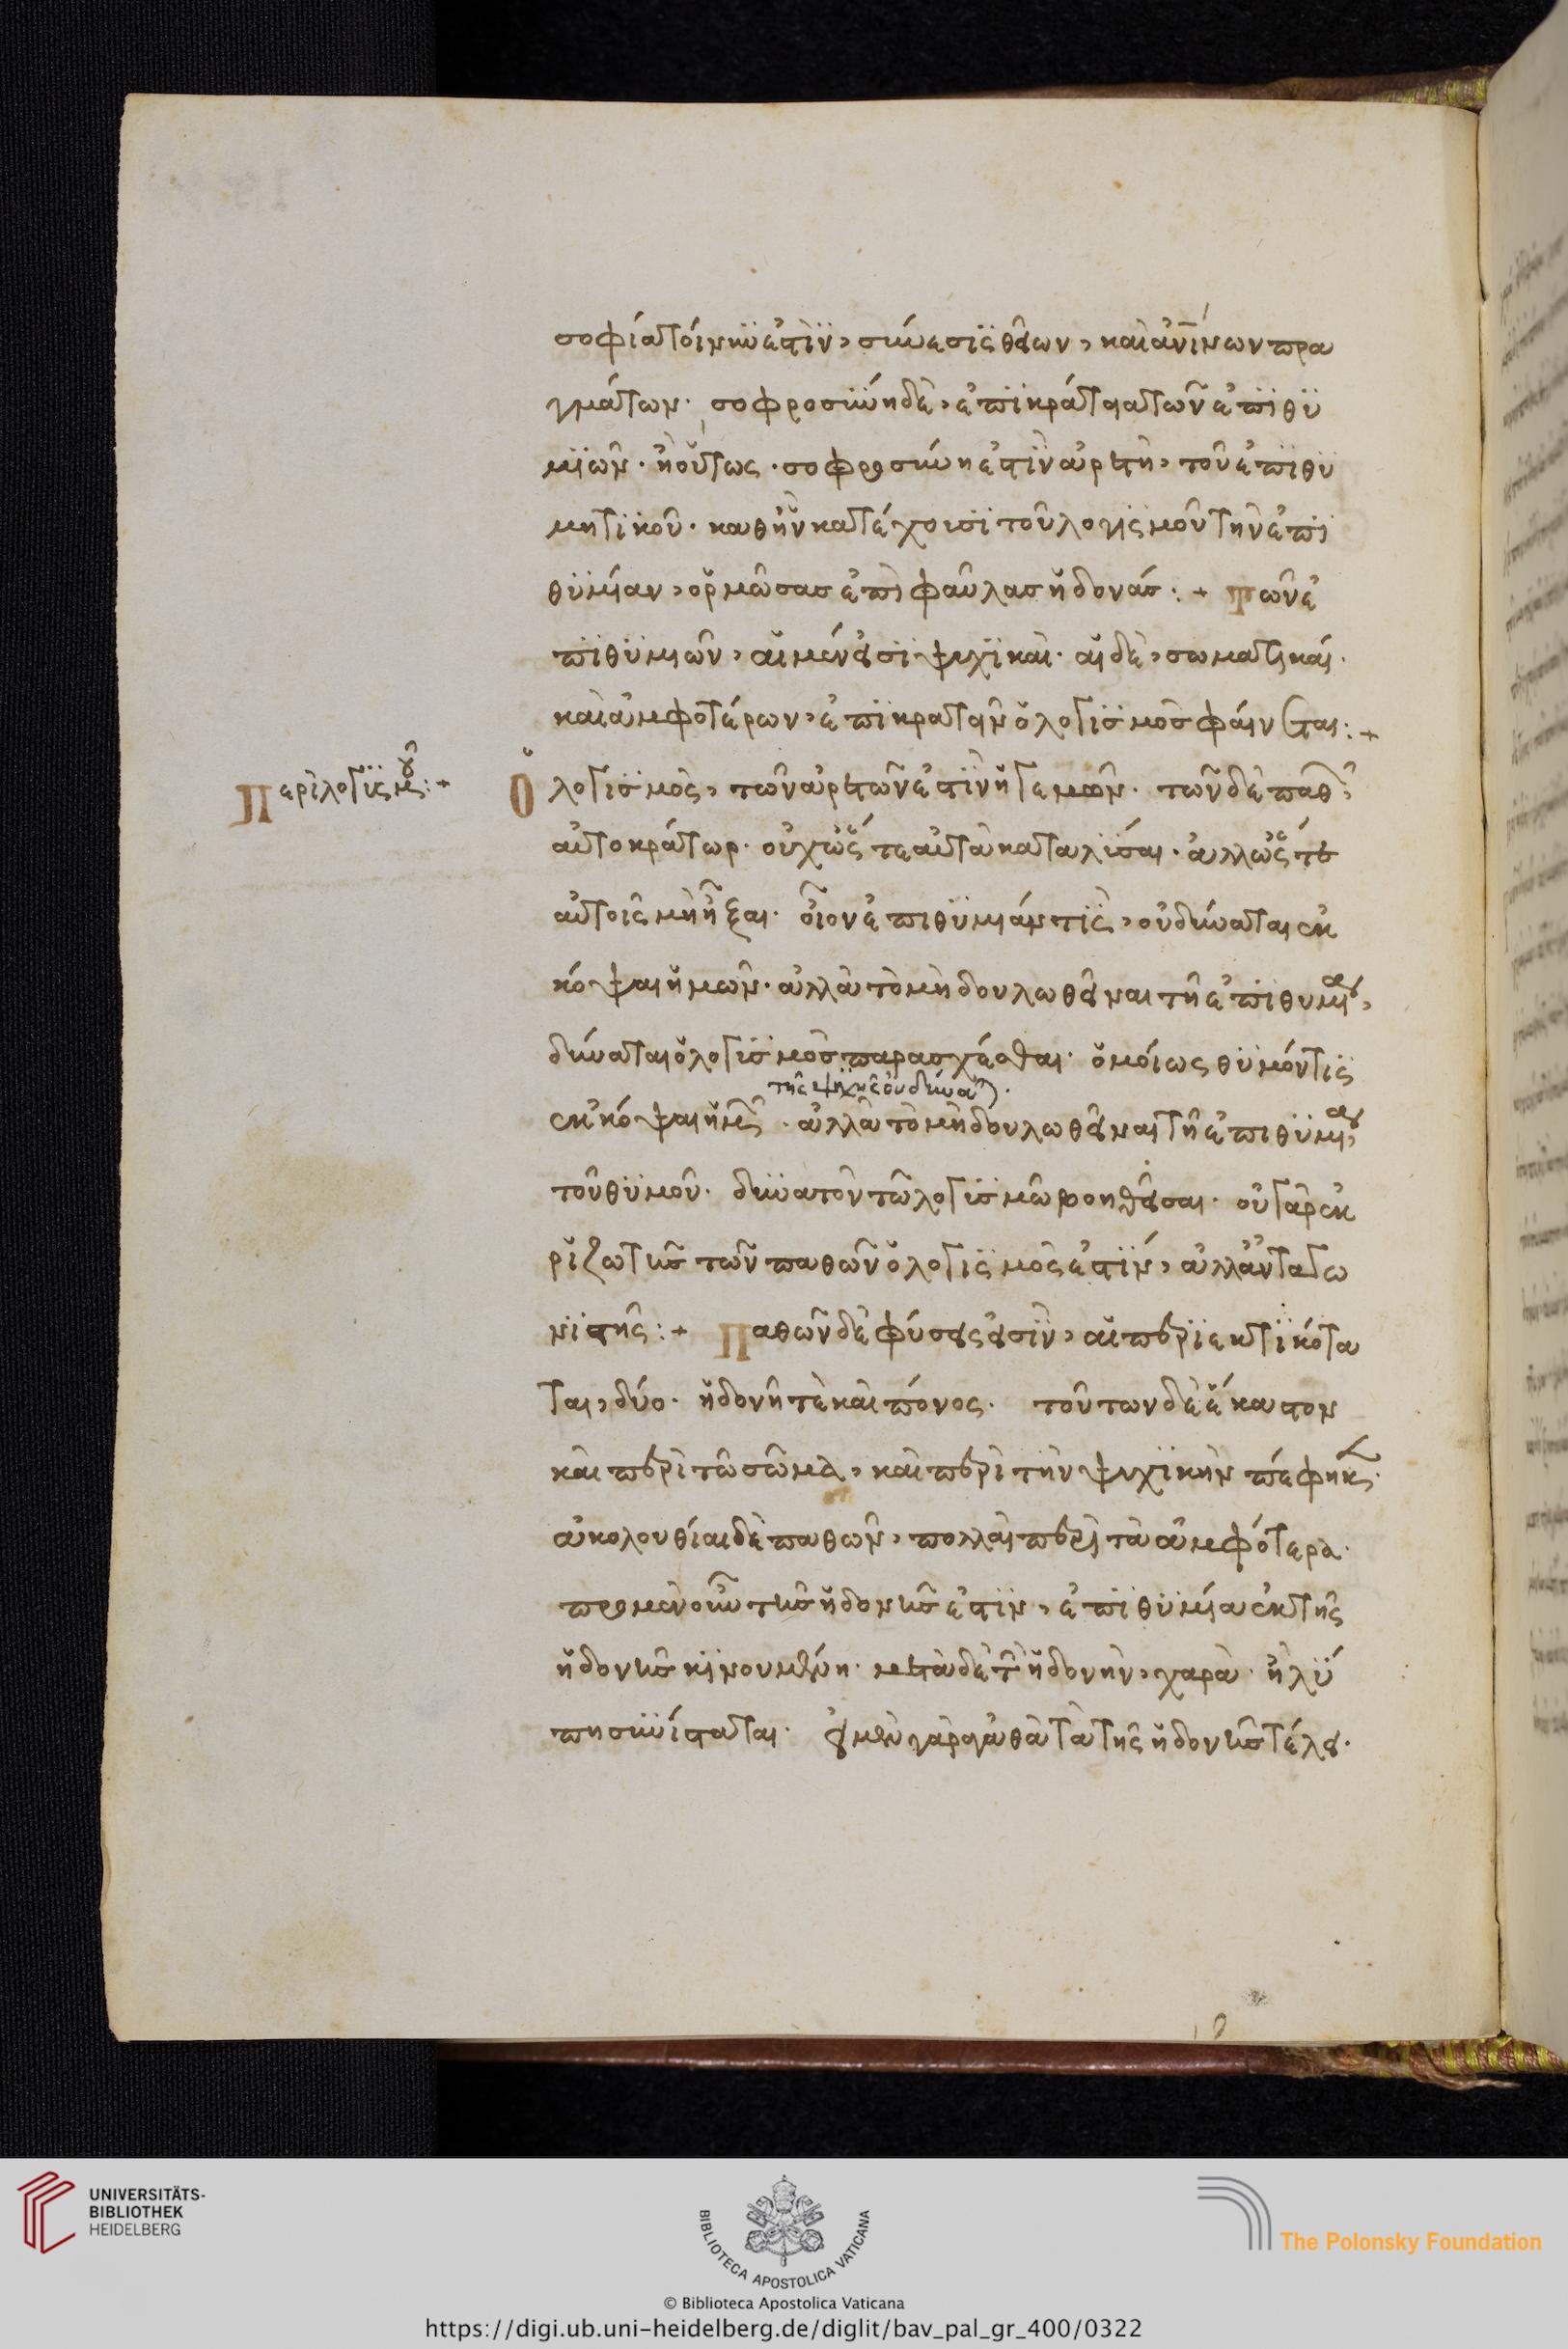 σοφία τοίνυν ἐστὶν, σύνεσϊς θείων, καὶ ἀνίνων πρα
γμάτων. σοφροσύνη δὲ, ἐπϊκράτεια τῶν ἐπϊθϋ
μϊῶν. ἢ οὕτως. σοφροσύνη ἐστὶν ἀρετὴ, τοῦ ἐπϊθϋ
μητϊκοῦ. καθἣν κατέχουσϊ τοῦ λογϊσμοῦ τὴν ἐπϊ
θϋμίαν, ὁρμῶσας ἐπὶ φαῦλας ἡδονάς :+ Τῶν ἐ
πϊθϋμιῶν, αἱ μέν εἰσϊ ψυχϊκαὶ. αἱ δὲ, σωματικαί.
καὶ ἀμφοτέρων, ἐπϊκρατεῖν ὁ λογϊσμὸς φαίνεται :+
Περὶ λογϊσμοῦ :+
Ὁ λογϊσμὸς, τῶν ἀρετῶν ἐστὶν ἡγεμῶν. τῶν δὲ παθῶν
αὐτοκράτωρ. οὐχ ὥστε αὐτὰ καταλῦσαι. ἀλλ ὥστε
αὐτοῖς μὴ ἦξαι. οἷον ἐπιθϋμιάν τϊς, οὐ δύναται ἐκ
κόψαι ἡμῶν. ἀλλὰ τὸ μὴ δουλωθεῖναι τῇ ἐπϊθυμίᾳ,
δύναται ὁ λογϊσμὸς παρασχέσθαι. ὁμοίως θϋμόν τϊς
τῆς ψυχῆς οὐ δύναται.
ἐκκόψαι ἡμῶν. ἀλλὰ τὸ μὴ δουλωθεῖναι τῇ ἐπιθϋμίᾳ
τοῦ θϋμοῦ. δυνατὸν τῷ λογϊσμῷ βοηθεῖσαι. οὐ γὰρ ἐκ
ρϊζωτὴς τῶν παθῶν ὁ λογϊσμὸς ἐστϊν, ἀλλ ἀνταγω
νϊστῆς :+ Παθῶν δὲ φύσεις εἰσϊν, αἱ περϊεκτϊκότα
ται, δύο. ἡδονῆ τὲ καὶ πόνος. τούτων δὲ ἕκαστον
καὶ περὶ τὸ σῶμα, καὶ περὶ τὴν ψυχϊκὴν πέφηκεν.
ἀκολουθίαι δὲ παθῶν, πολλαὶ περὶ τὰ ἀμφότερα.
πρὸ μὲν οὖν τῆς ἡδονῆς ἐστϊν, ἐπϊθϋμία ἐκ τῆς
ἡδονῆς κϊνουμένη. μετὰ δὲ τὴν ἡδονὴν, χαρὰ. ἢ λϋ
πη συνίσταται. εἰ μὲν γὰρ ἀγαθὰ τὰ τῆς ἡδονῆς τέλει.
UNIVERSITÄTS-
BIBLIOTHEK
HEIDELBERG
BIBLIOTECA APOSTOLICA VATICANA
The Polonsky Foundation
© Biblioteca Apostolica Vaticana
https://digi.ub.uni-heidelberg.de/diglit/bav_pal_gr_400/0322